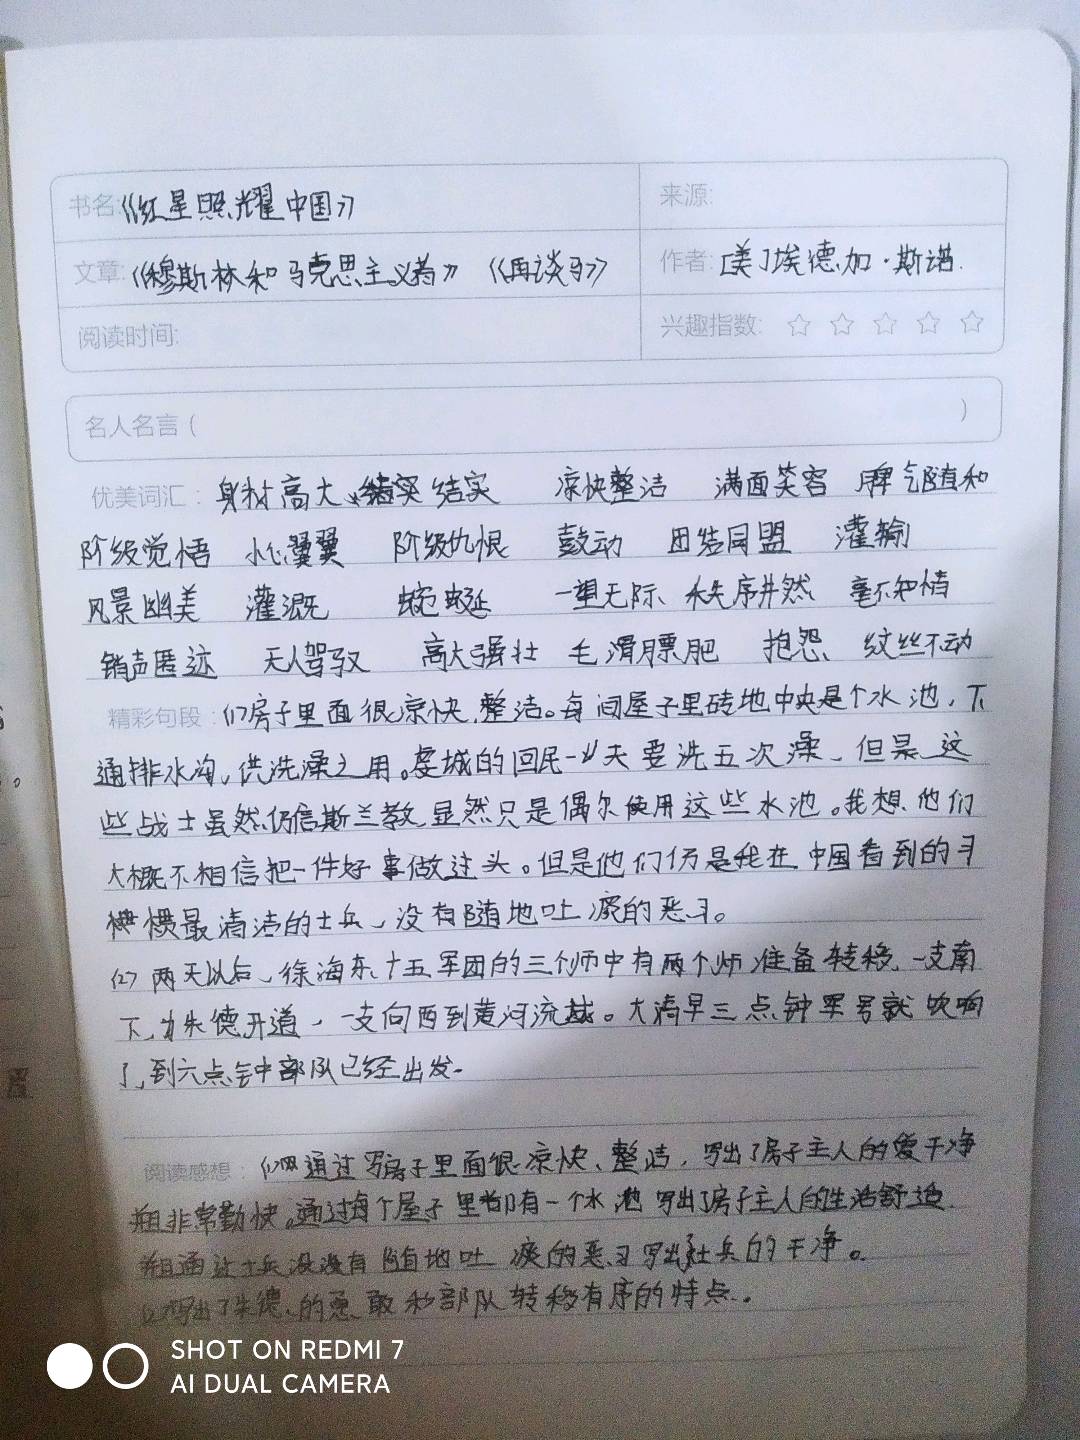 书名:《红星照耀中国》
来源:
文章:《穆斯林和马克思主义者》 《再谈马》
作者:[美]埃德加·斯诺.
阅读时间:
兴趣指数: ☆ ☆ ☆ ☆ ☆
名人名言 ( )
优美词汇: 身材高大、结实 凉快整洁 满面笑容 脾气随和
阶级觉悟 小心翼翼 阶级仇恨 鼓动 团结同盟 灌输
风景幽美 灌溉 蜿蜒 一望无际 秩序井然 毫不知情
销声匿迹 天人驾驭 高大强壮 毛滑膘肥 抱怨 纹丝不动
精彩句段: (1)房子里面很凉快,整洁。每间屋子里砖地中央是个水池,下
通排水沟,供洗澡之用。城的回民一天要洗五次澡,但是这
些战士虽然仍信斯兰教,显然只是偶尔使用这些水池。我想他们
大概不相信把一件好事做过头。但是他们仍是我在中国看到的习
惯最清洁的士兵,没有随地吐痰的恶习。
(2)两天以后,徐海东十五军团的三个师中有两个师准备转移,一支南
下,为朱德开道,一支向西到黄河流域。大清早三点钟军号就吹响
了,到六点钟部队已经出发.
阅读感想: (1)通过写房子里面很凉快、整洁,写出了房子主人的爱干净
且非常勤快。通过每个屋子里都有一个水池写出了房子主人的生活舒适.
并且通过士兵没有随地吐痰的恶习写出士兵的干净。
(2)写出了朱德的勇敢和部队转移有序的特点.
SHOT ON REDMI 7
AI DUAL CAMERA